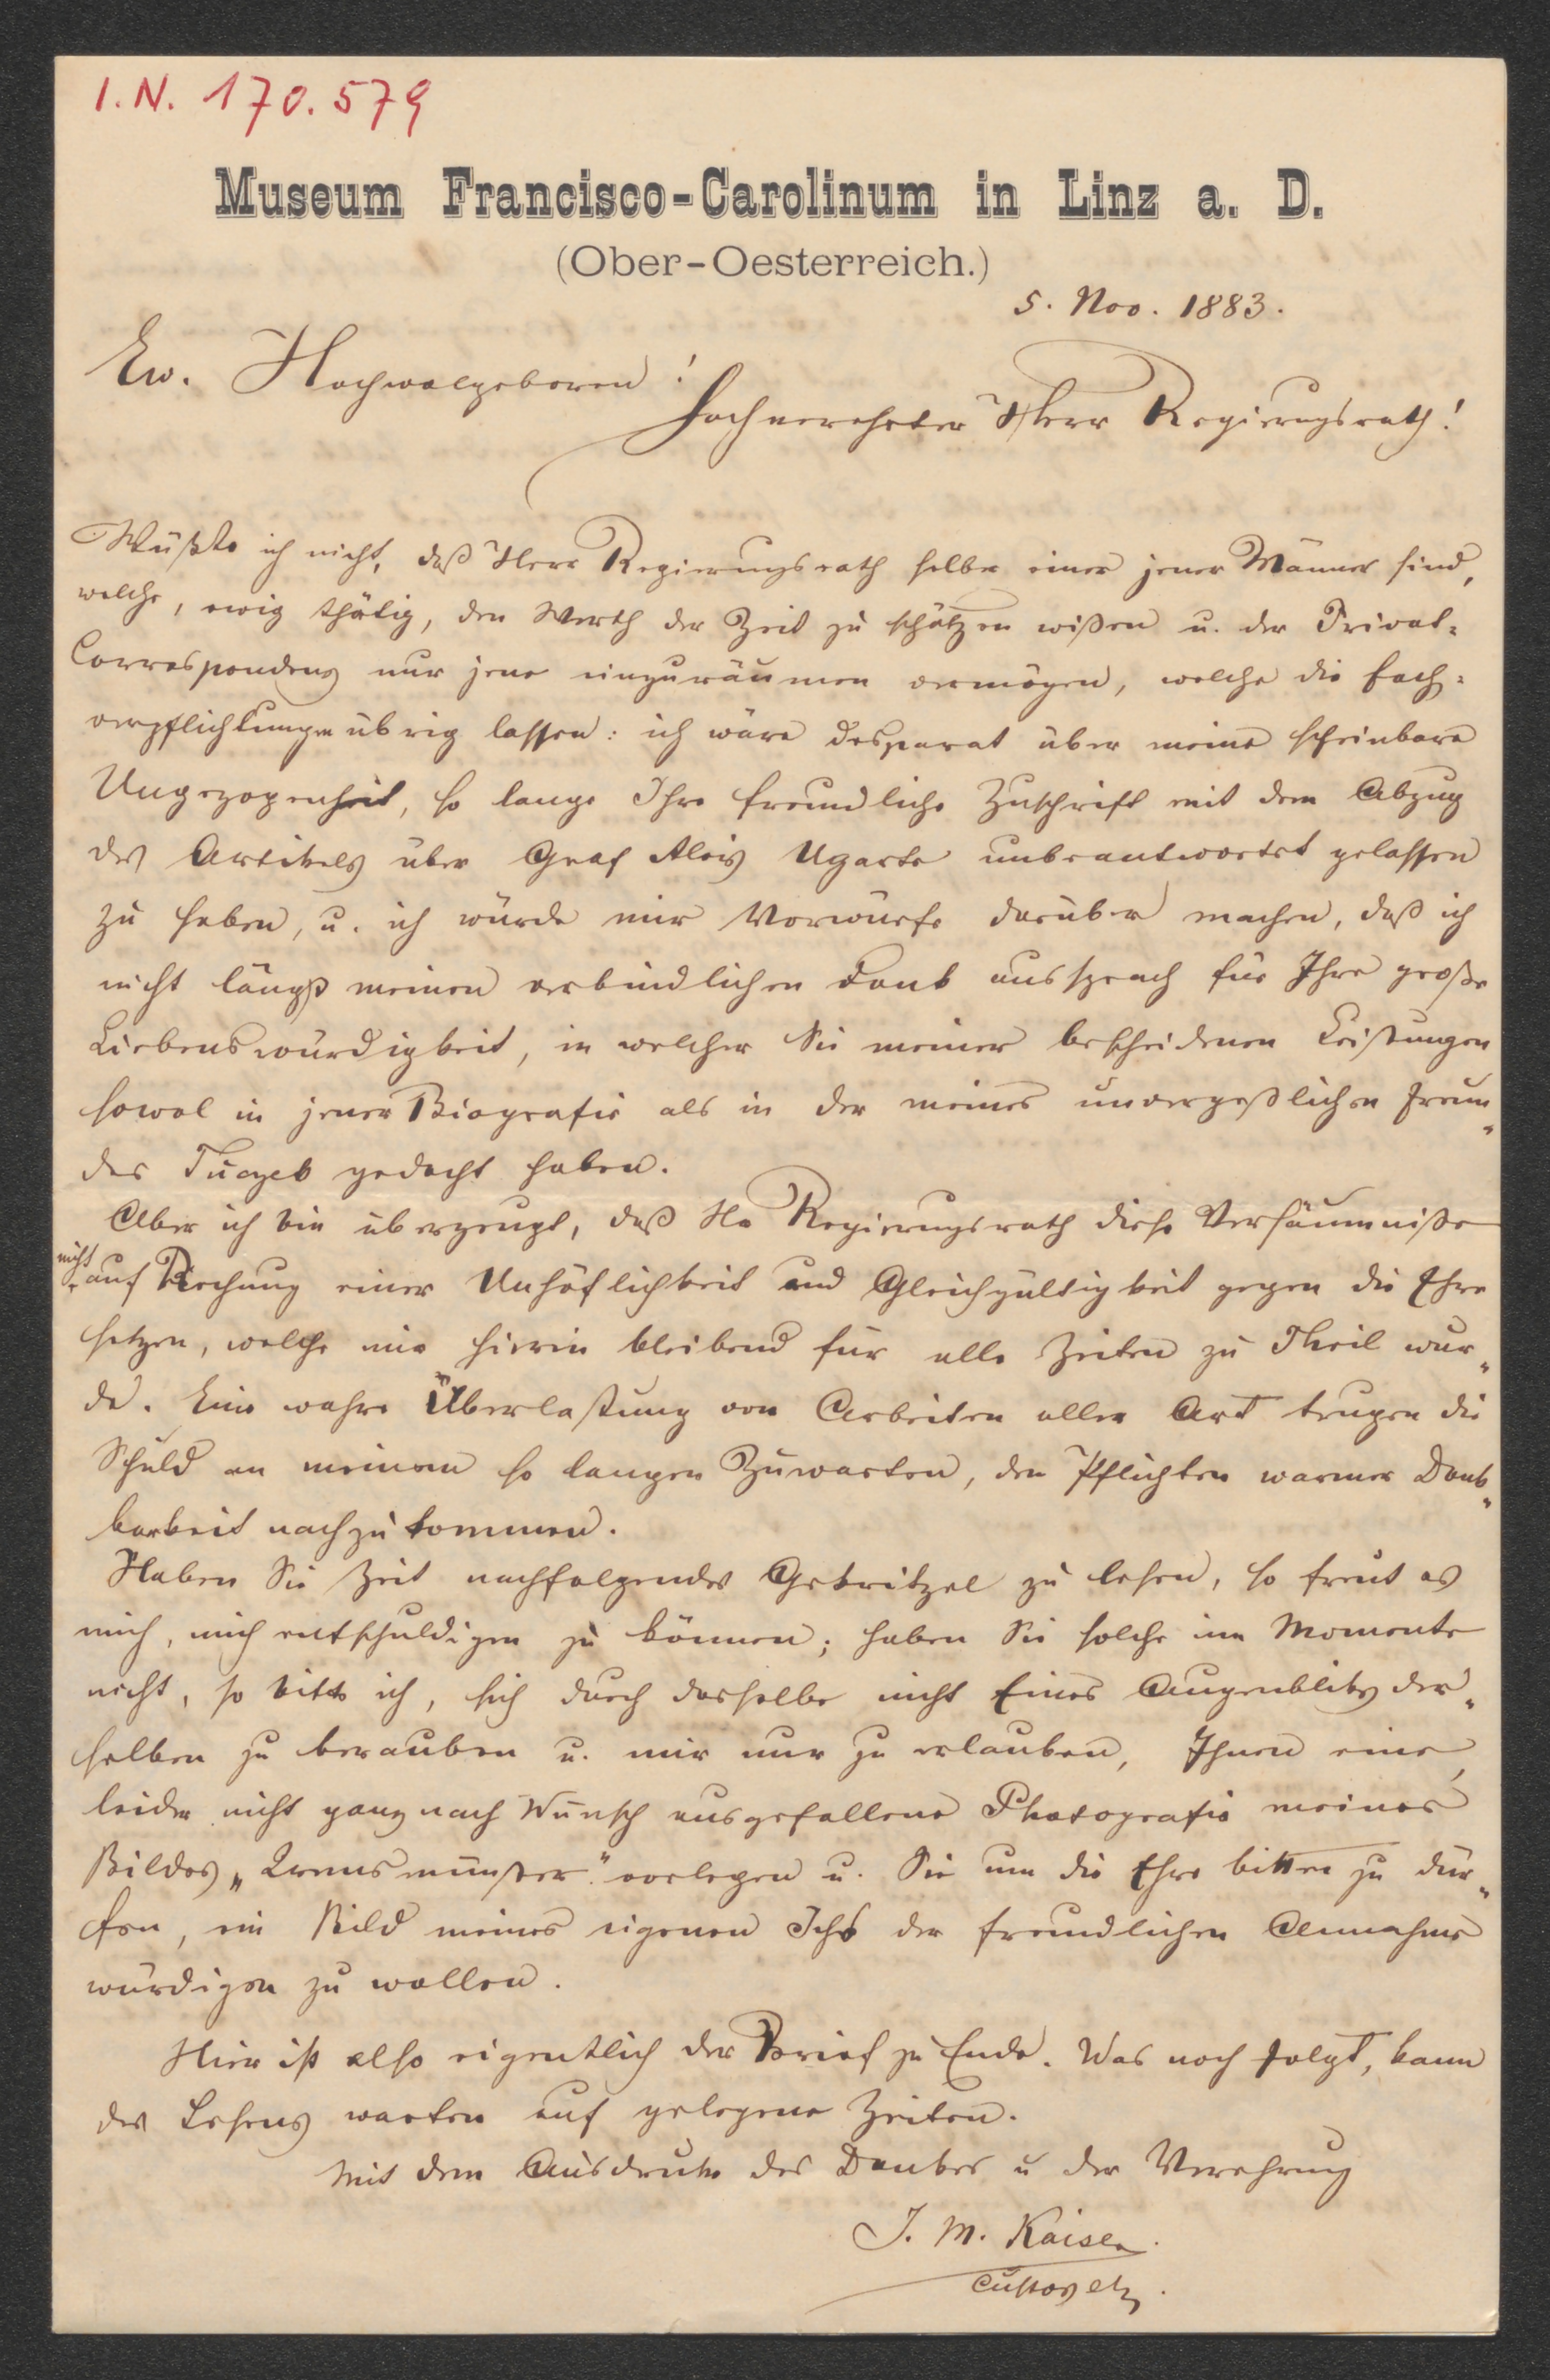 I.N. 170.579
Museum Francisco-Carolinum in Linz a. D.
(Ober-Oesterreich.)
5. Nov. 1883.
Ew. Hochwolgeboren!
Hochverehrter Herr Regierungsrath!
Wüßte ich nicht, daß Herr Regierungsrath selber einer jener Männer sind,
welche, ewig thätig, den Werth der Zeit zu schätzen wißen u. der Privat-
Correspondenz nur jene einzuräumen vermögen, welche die Fach-
verpflichtungen übrig lassen: ich wäre desparat über meine scheinbare
Ungezogenheit, so lange Ihre freundliche Zuschrift mit dem Abzug
des Artikels über Graf Alois Ugarte unbeantwortet gelassen
zu haben, u. ich würde mir Vorwürfe darüber machen, daß ich
nicht längst meinen verbindlichen Dank aussprach für Ihre große
Liebenswürdigkeit, in welcher Sie meiner bescheidenen Leistungen
sowol in jener Biografie als in der meines unvergeßlichen Freun-
des Tuczek gedacht haben.
Aber ich bin überzeugt, daß Hr Regierungsrath diese Versäumniße
nicht auf Rechnung einer Unhöflichkeit und Gleichgültigkeit gegen die Ehre
setzen, welche mir hierin bleibend für alle Zeiten zu Theil wur-
de. Eine wahre Überlastung von Arbeiten aller Art trugen die
Schuld an meinem so langen Zuwarten, den Pflichten warmer Dank-
barkeit nachzukommen.
Haben Sie Zeit nachfolgendes Gekritzel zu lesen, so freut es
mich, mich entschuldigen zu können; haben Sie solche im Momente
nicht, so bitte ich, sich durch dasselbe nicht Eines Augenbliks der-
selben zu berauben u. mir nur zu erlauben, Ihnen eine,
leider nicht ganz nach Wunsch ausgefallene Photografie meines
Bildes „Kremsmünster" vorlegen u. Sie um die Ehre bitten zu dür-
fen, ein Bild meines eigenen Ichs der freundlichen Annahme
würdigen zu wollen.
Hier ist also eigentlich der Brief zu Ende. Was noch folgt, kann
des Lesens warten auf gelegene Zeiten.
Mit dem Ausdruke des Dankes u der Verehrung
J. M. Kaiser
Custos